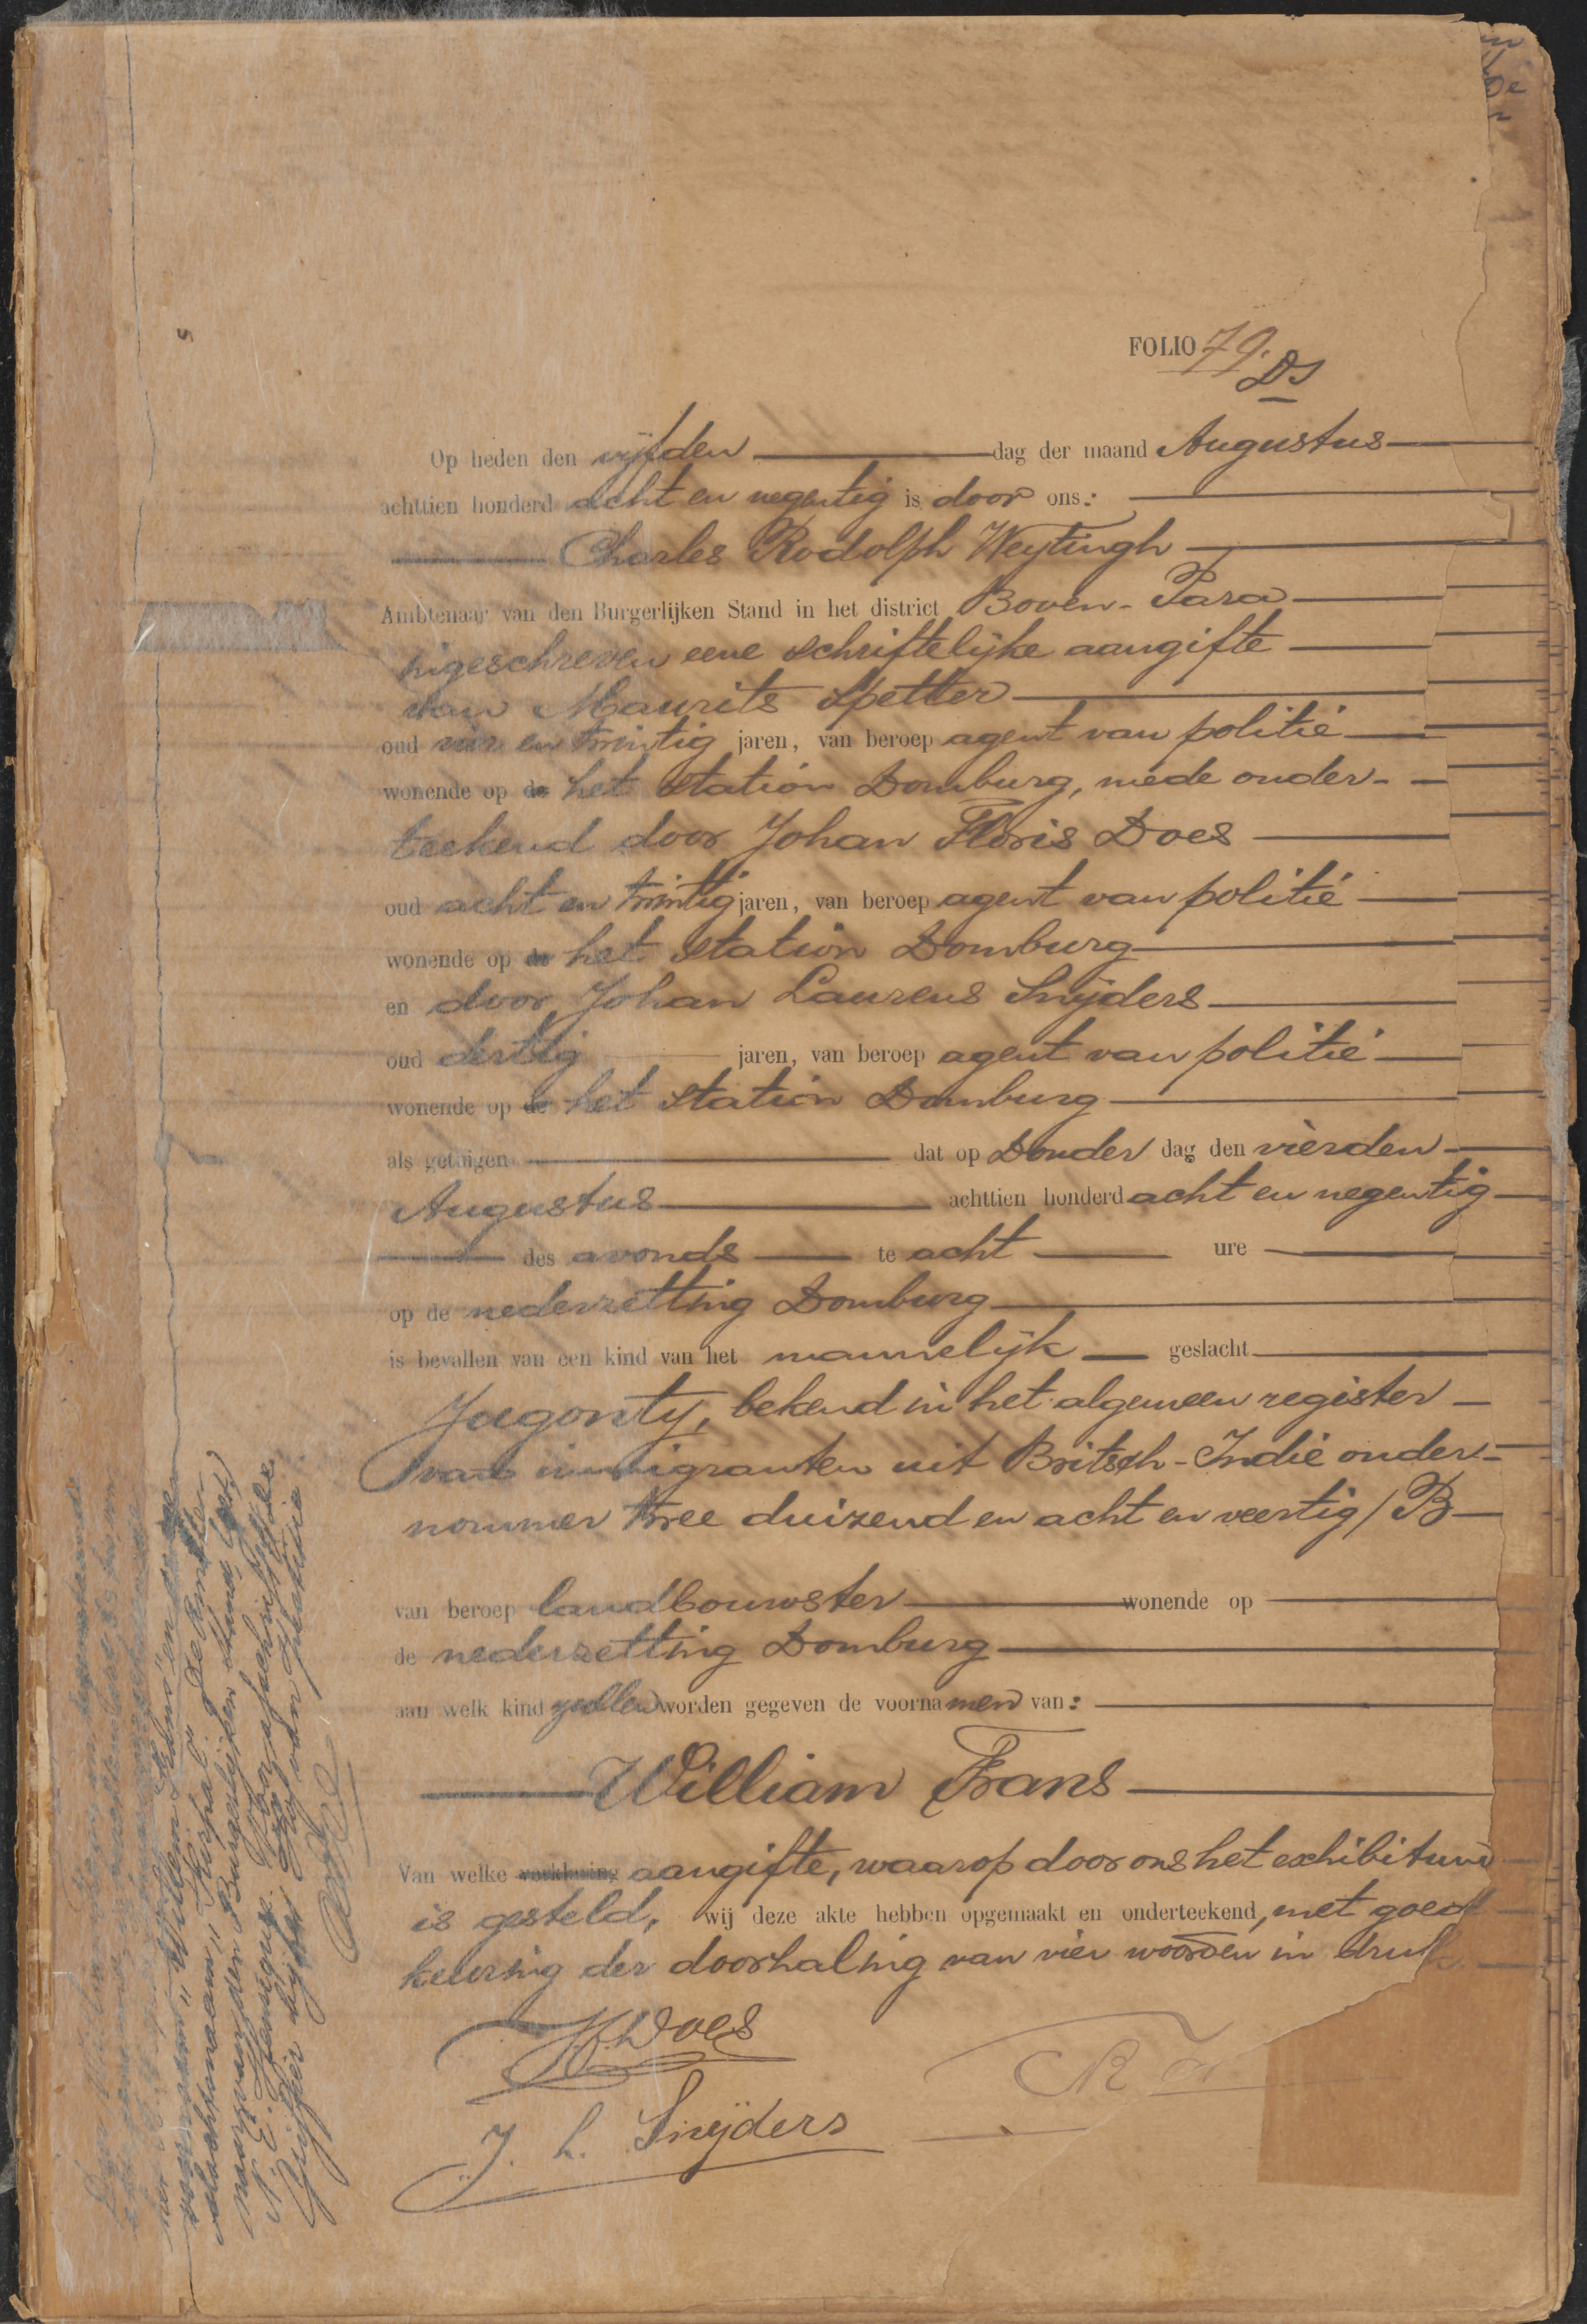 FOLIO 79.
DS
Op heden den vijfden dag der maand Augustus
achttien honderd acht en negentig is door ons:
Charles Rodolph Weytingh
Ambtenaar van den Burgerlijken Stand in het district Boven-Para
ingeschreven eene schriftelijke aangifte
van Maurits Spetter
oud vier en twintig jaren, van beroep agent van politie
wonende op de het station Domburg, mede onder-
teekend door Johan Floris Does
oud acht en twintig jaren, van beroep agent van politie
wonende op de het station Domburg
en door Johan Laurens Snijders
oud dertig jaren, van beroep agent van politie
wonende op de het station Domburg
als getuigen dat op Donder dag den vierden
Augustus achttien honderd acht en negentig
des avonds te acht ure
op de nederzetting Domburg
is bevallen van een kind van het mannelijk geslacht
Jagonty, bekend in het algemeen register
van immigranten uit Britsch-Indië onder-
nommer twee duizend en acht en veertig/B
van beroep landbouwster wonende op
de nederzetting Domburg
aan welk kind zullen worden gegeven de voornamen van:
William Frans
Van welke verklaring aangifte, waarop door ons het exhibitum
is gesteld, wij deze akte hebben opgemaakt en onderteekend, met goed
keuring der doorhaling van vier woorden in druk
J.F. Does
J. L. Snijders
voornaam "Willem Edmo" en
slachtsnaam "Kirpal". De Ambte-
naar van den Burgerlijken Stand, (get)
A. E. Voor afschrift De
Griffier bij het Hof van Justitie.